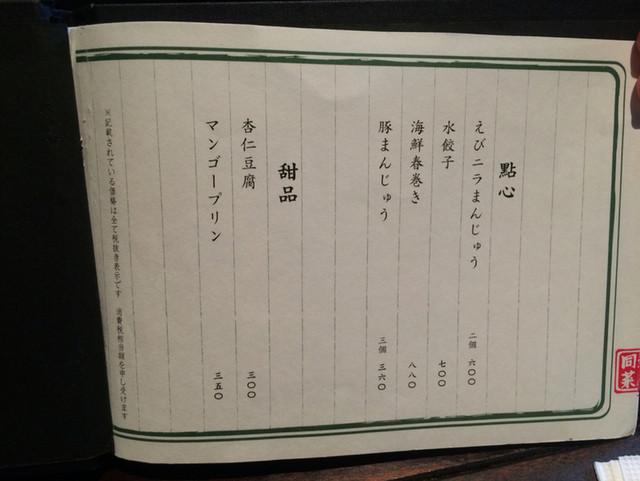 點心
えびニラまんじゅう 二個 六〇〇
水餃子 七〇〇
海鮮春巻き 八八〇
豚まんじゅう 三個 三六〇
甜品
杏仁豆腐 三〇〇
マンゴープリン 三五〇
※記載されている価格は全て税抜き表示です 消費税相当額を申し受けます
同菜